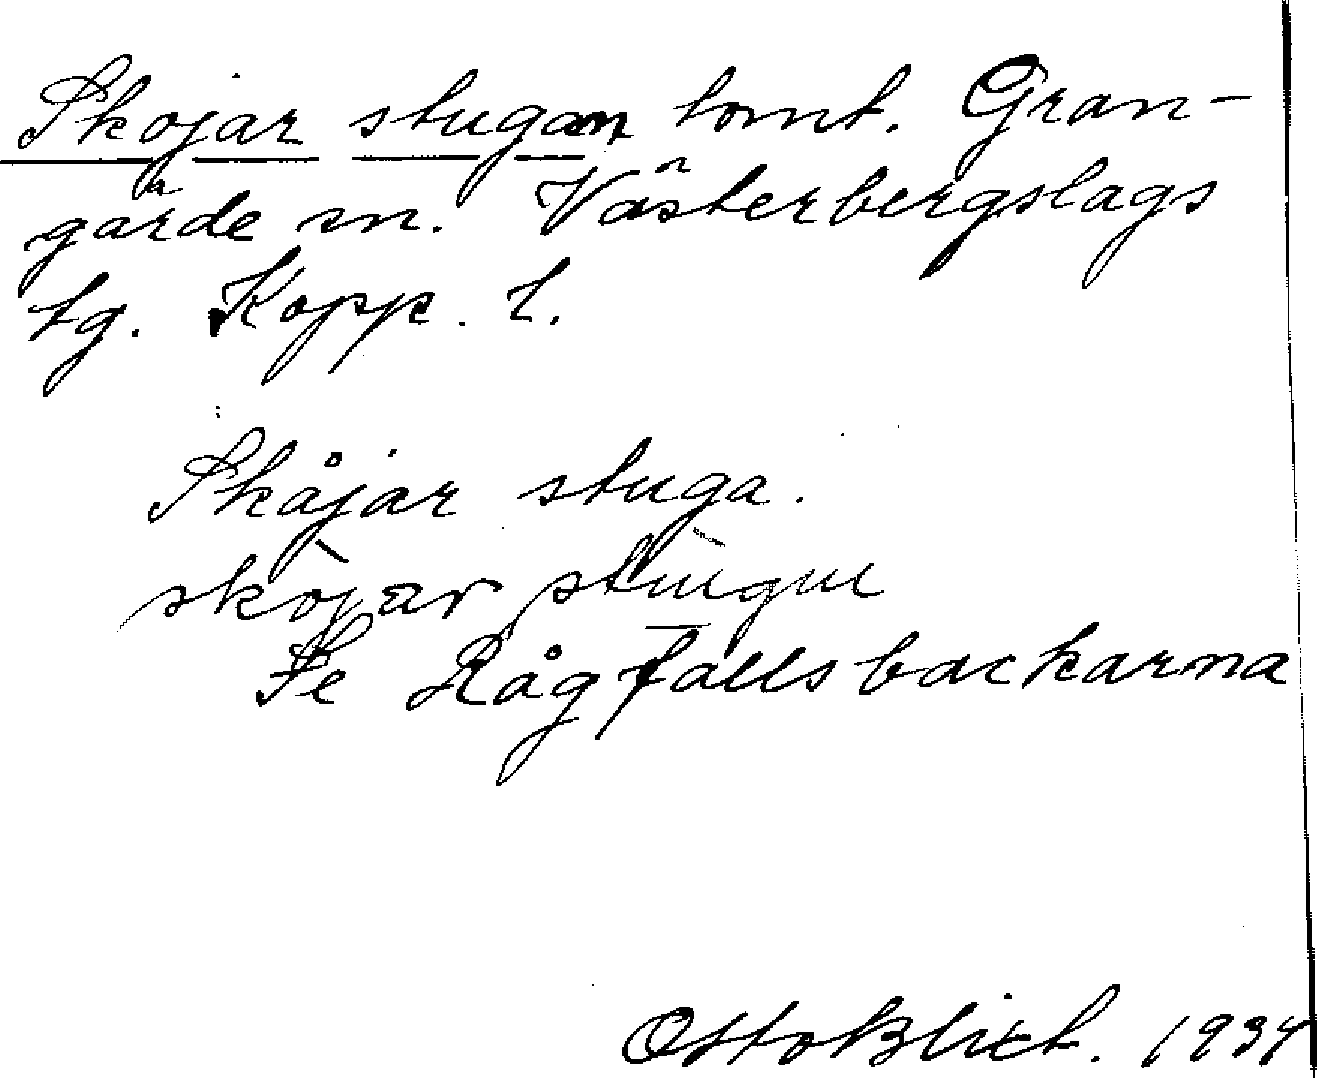 Skojar stugan tomt. Gran-
gärde sn. Västerbergslags
tg. Kopp. l.
Skåjar stuga.
skojar stugu
Se Rågfallsbackarna
Otto Blixt. 1934